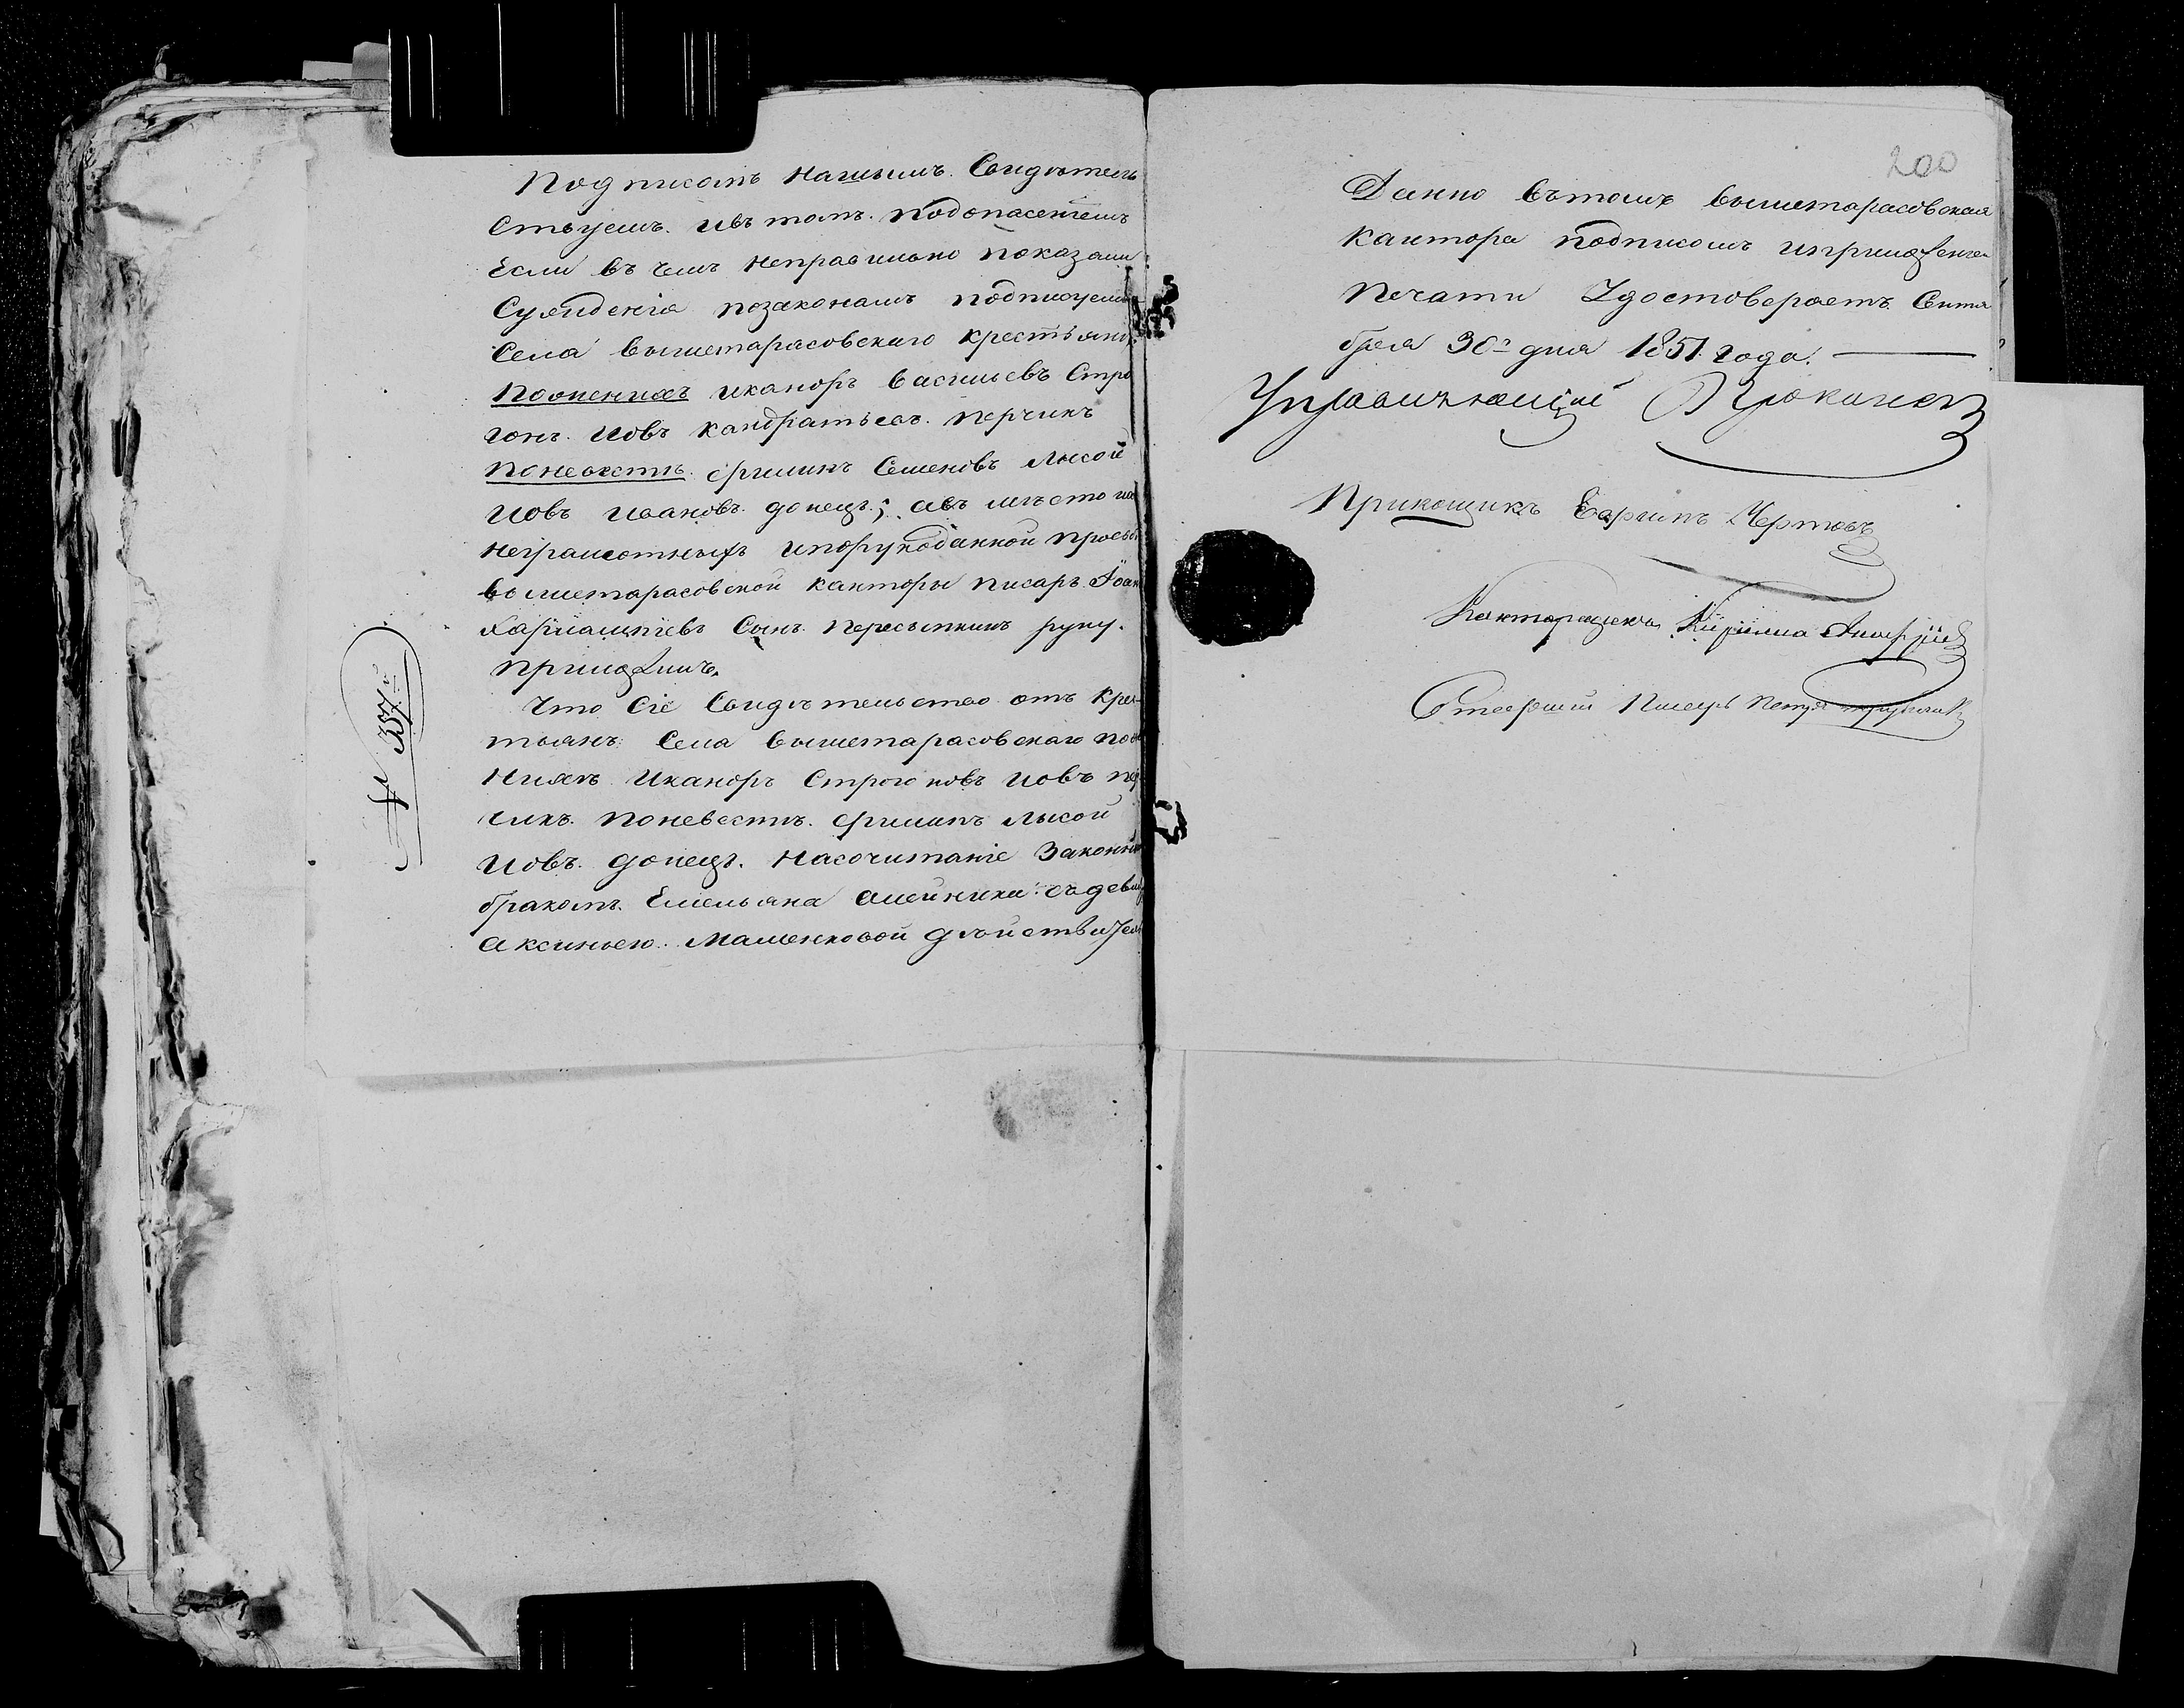 Подписомъ нашымъ. Свидѣтель
ствуемъ. ивъ томъ. подопасениемъ
Если въ чемъ неправильно показали
Сужденія позаконамъ подписуемъ
Села вышетарасовскаго крестьяне
Поженихѣ иканоръ васильевъ Стро
гонъ. Иовъ кандратьевъ. перчикъ
поневестѣ. филипъ Семеновъ лысой
Иовъ ивановъ. донецъ; авъ мѣсто их
неграмотныхъ ипорукоданной прозби
вышетарасовской канторы писаръ Іоан
Харлампіевъ Сынъ. Пересыпкинъ руку.
приложилъ.
Что Сіе Свидѣтельство отъ крес
тьянъ: Села вышетарасовскаго пože
нихѣ Иканоръ Строгоновъ Иовъ пер
чикъ. поневестѣ. филипъ лысой
Иовъ. донецъ. насочитаніе Законны
бракомъ. Емельяна Олейника: съ девиц
Аксиньею. Машенковой дѣйствител
№ 357й
200
Данно вътомъ вышетарасовская
кантора подписомъ иприложениемъ
печати Удостоверяетъ. Сентя
бря 30го дня 1851. года.
Управляющий
Прикощикъ Чертовъ
Канторщикъ Кирилла
Старший Писаръ Петръ